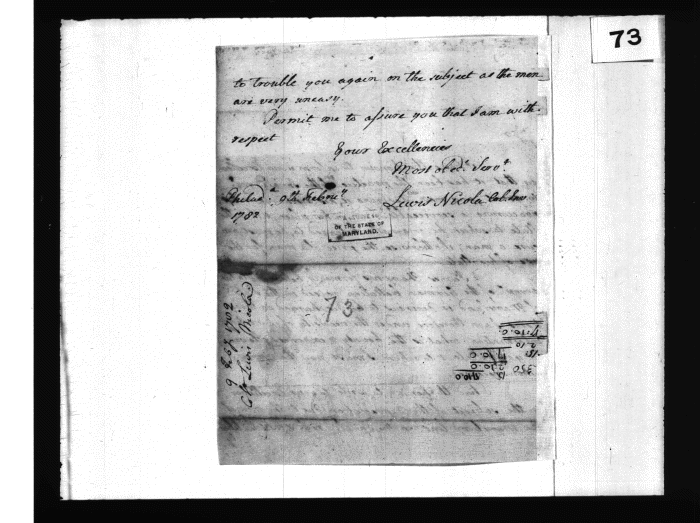 73
to trouble you again on the subject as the men
are very uneasy.
Permit me to assure you that I am with
respect
Your Excellencies
Most obed.t Serv.t
Philad.a 9th Febru.y
1782
Lewis Nicola Col. Inv.
OF THE STATE OF
MARYLAND.
73
9 1782
Lewis Nicola
350